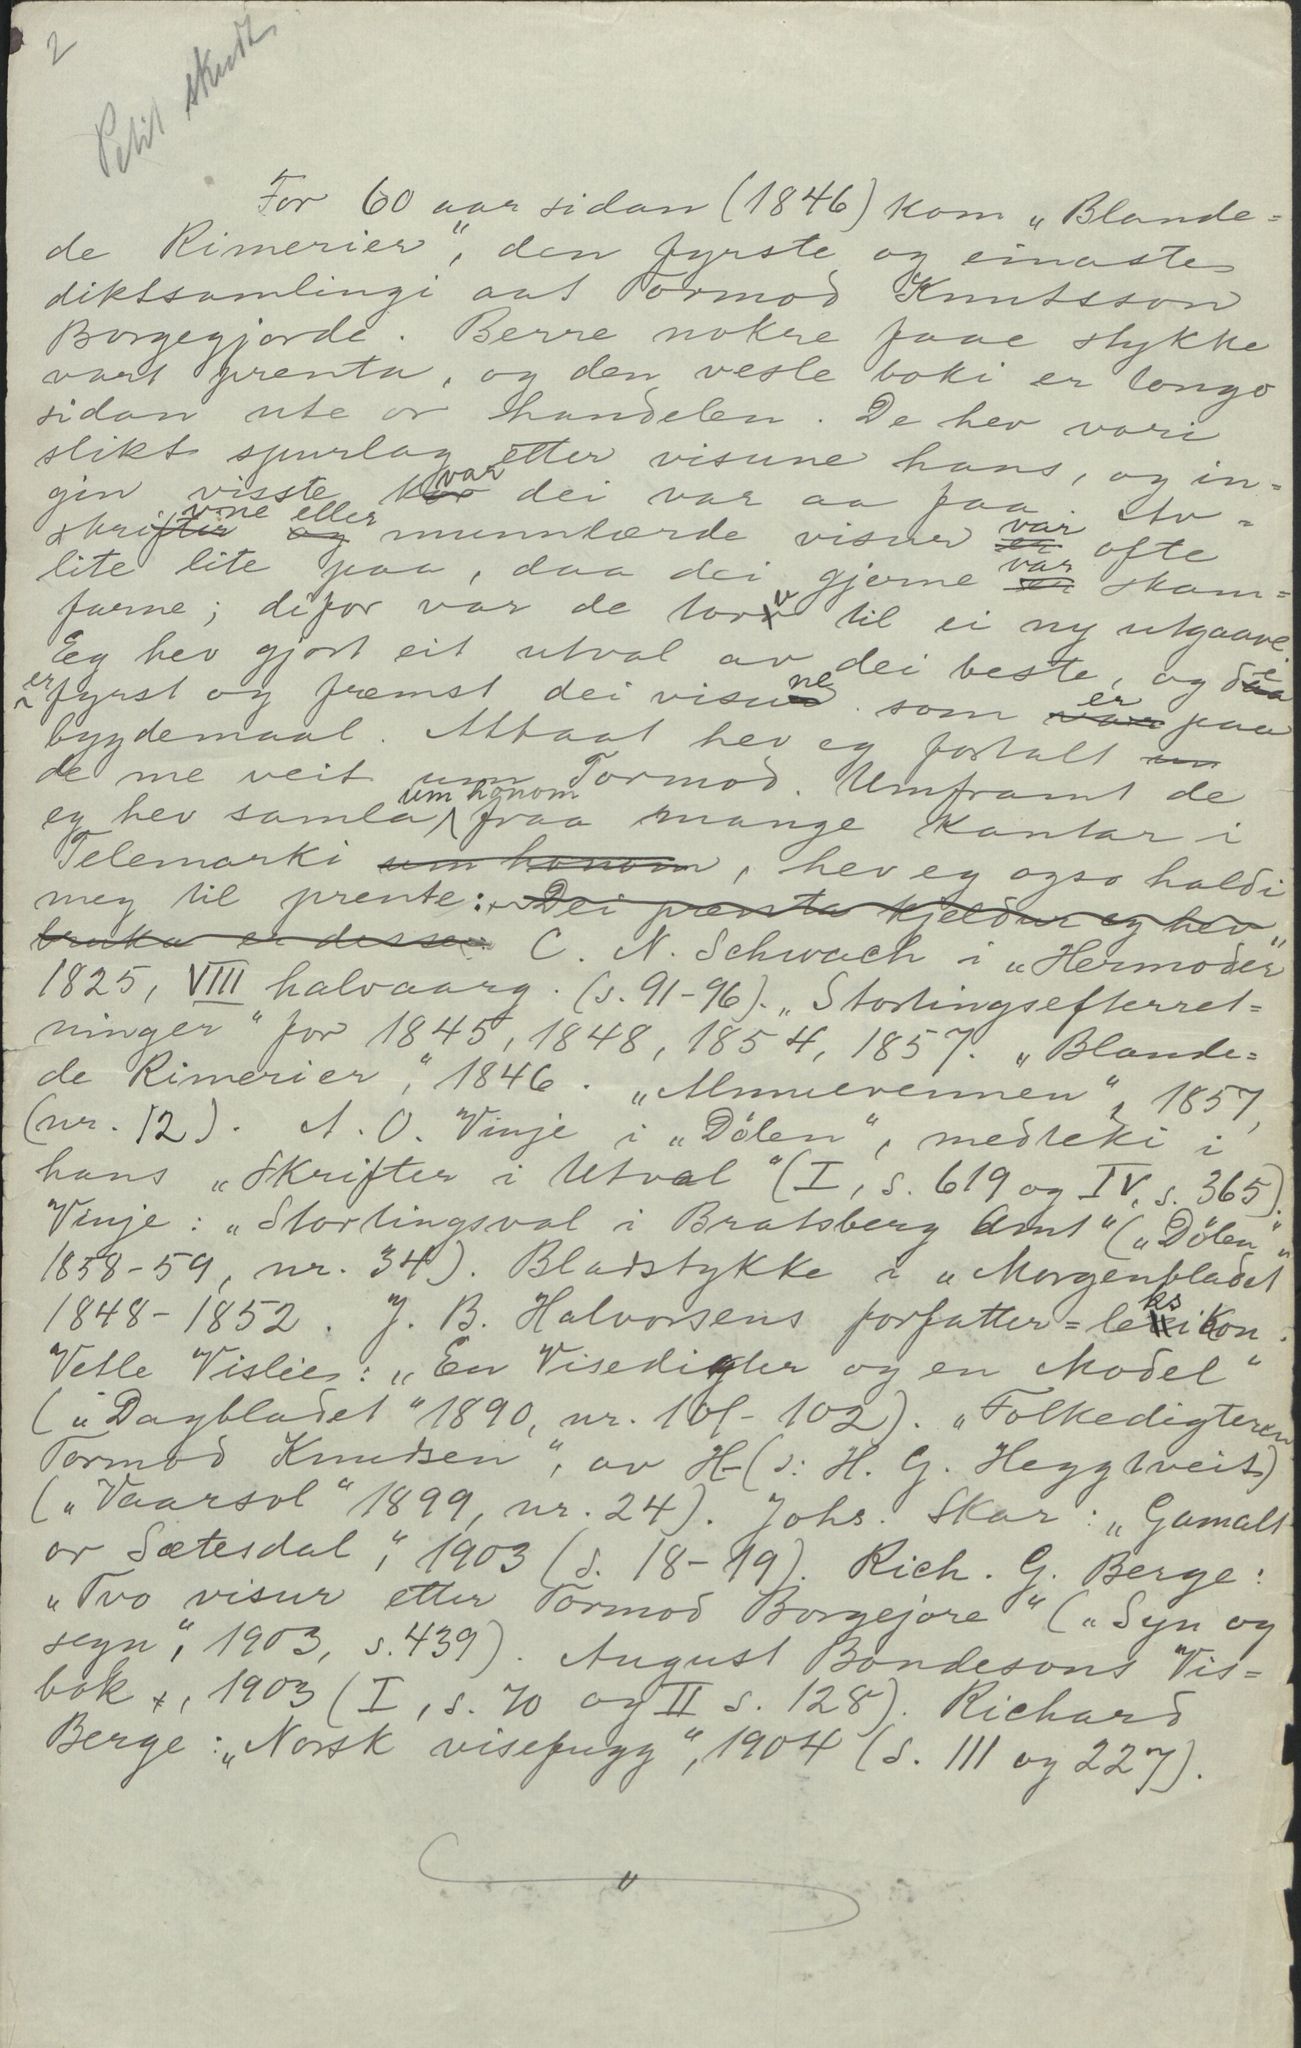 2
Petit skudt
For 60 aar sidan (1846) kom „Blande=
de Rimerier", den fyrste og einaste
diktsamlingi aat Tormod Knutsson
Borgegjorde. Berre nokre faae stykke
vart prenta, og den vesle boki er longo
sidan ute or handelen. De hev vori
slikt spurlag etter visune hans, og in=
gin visste kvar dei var aa faa. Av=
skriftine eller munnlærde visur var ofte
lite lite paa, daa dei gjerne var skam=
farne; difor var de torv til ei ny utgaave.
Eg hev gjort eit utval av dei beste, og de
er fyrst og fremst dei visune som er paa
bygdemaal. Attaat hev eg fortalt
de me veit um Tormod. Umframt de
eg hev samla um honom fraa mange kantar i
Telemarki um honom, hev eg ogso haldi
meg til prente: Dei prenta kjeldur eg hev
bruka er desse: C. N. Schwach i „Hermoder"
1825, VIII halvaarg. (s. 91-96). „Stortingsefterret=
ninger" for 1845, 1848, 1854, 1857. „Blande=
de Rimerier", 1846. „Almuevennen", 1857,
(nr. 12). A. O. Vinje i „Dölen", medteki i
hans „Skrifter i Utval" (I, s. 619 og IV, s. 365).
Vinje: „Stortingsval i Bratsberg Amt" („Dölen,"
1858-59, nr. 34). Bladstykke i „Morgenbladet"
1848-1852. J. B. Halvorsens forfatter=leksikon.
Vetle Vislie: „En Visedigter og en Model"
(i „Dagbladet" 1890, nr. 101-102). „Folkedigteren
Tormod Knudsen", av H- (s: H. G. Heggtveit)
(„Vaarsol" 1899, nr. 24). Johs. Skar: „Gamalt
or Sætesdal", 1903 (s. 18-19). Rich. G. Berge:
„Tvo visur etter Tormod Borgejore" („Syn og
segn", 1903, s. 439). August Bondesons Vis=
bok, 1903 (I, s. 70 og II s. 128). Richard
Berge: „Norsk visefugg", 1904 (s. 111 og 227).
"